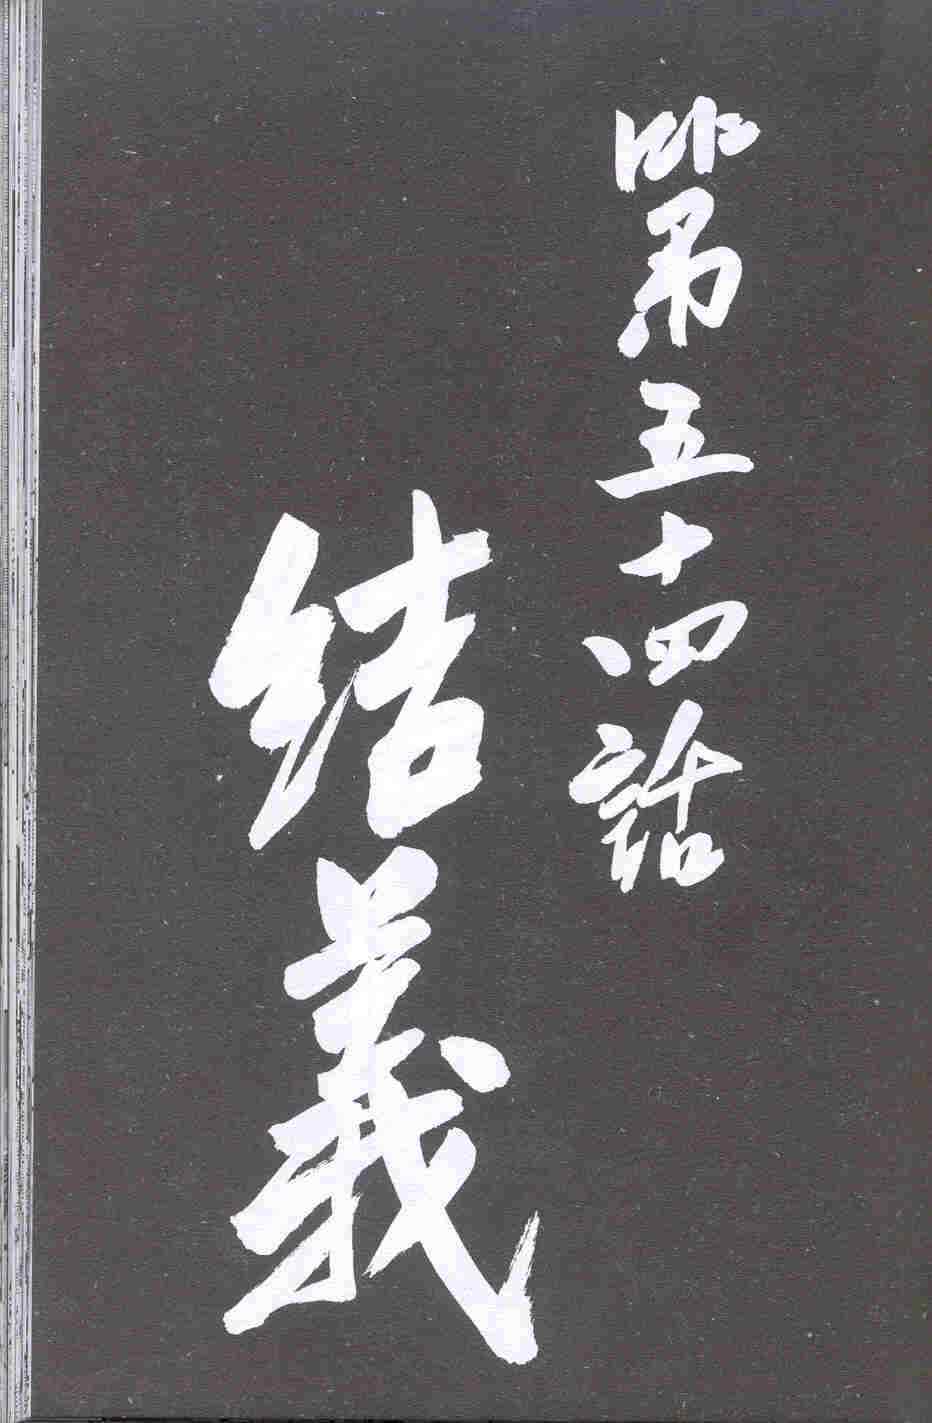 第五十四話
結義